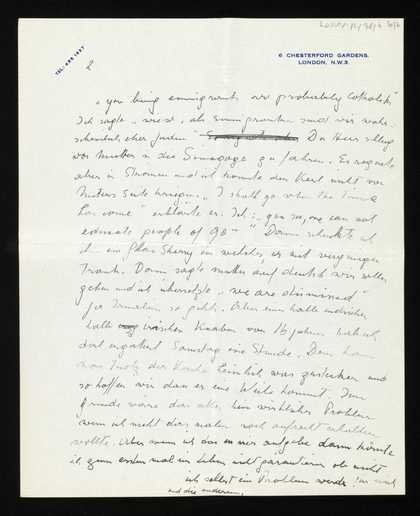 TEL: 435 1857
6 CHESTERFORD GARDENS,
LONDON, N.W.3.
2
"you being emigrants are probably Catholik"
Ich sagte "nein, als immigranten sind wir wahr-
scheinlich eher Juden" Der Herr schlug
vor Mutter in die Synagoge zu fahren. Es regnete
aber in Strömen und ich konnte den Kerl nicht von
Mutters Seite kriegen. "I shall go when the time
has come" erklärte er. Ich: you see, one can not
educate people of 90 - " Dann schenkte ich
ein Glas Sherry ein welches er mit vergnügen
Trank. Dann sagte Mutter auf deutsch wir sollen
gehen und ich übersetzte "we are dismissed"
Für Irmeline, so geht's. Über einen halb indischen
halb irischen Knaben von 16 Jahren hab ich
dort ergattert Samstag eine Stunde. Dem kann
man Trotz der Kürze Zeichnen was zustecken und
so hoffen wir dass er eine Weile kommt. Im
Grunde wäre das alles kein wirkliches Problem
wenn ich nicht das malen noch aufrecht erhalten
wollte. Aber wenn ich das nun aufgebe dann könnte
ich zum ersten mal im Leben nicht garantieren ob nicht
ich selbst ein Problem werde für mich
und die anderen.